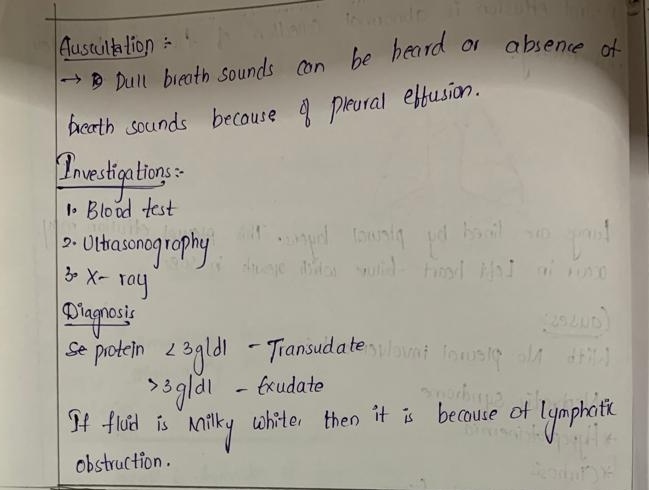 Auscultation :-
→ Dull breath sounds can be heard or absence of
breath sounds because of pleural effusion.
Investigations:-
1. Blood test
2. Ultrasonography
3. X-ray
Diagnosis
Se protein < 3g/dl - Transudate
>3g/dl - Exudate
If fluid is Milky white, then it is because of lymphatic
obstruction.